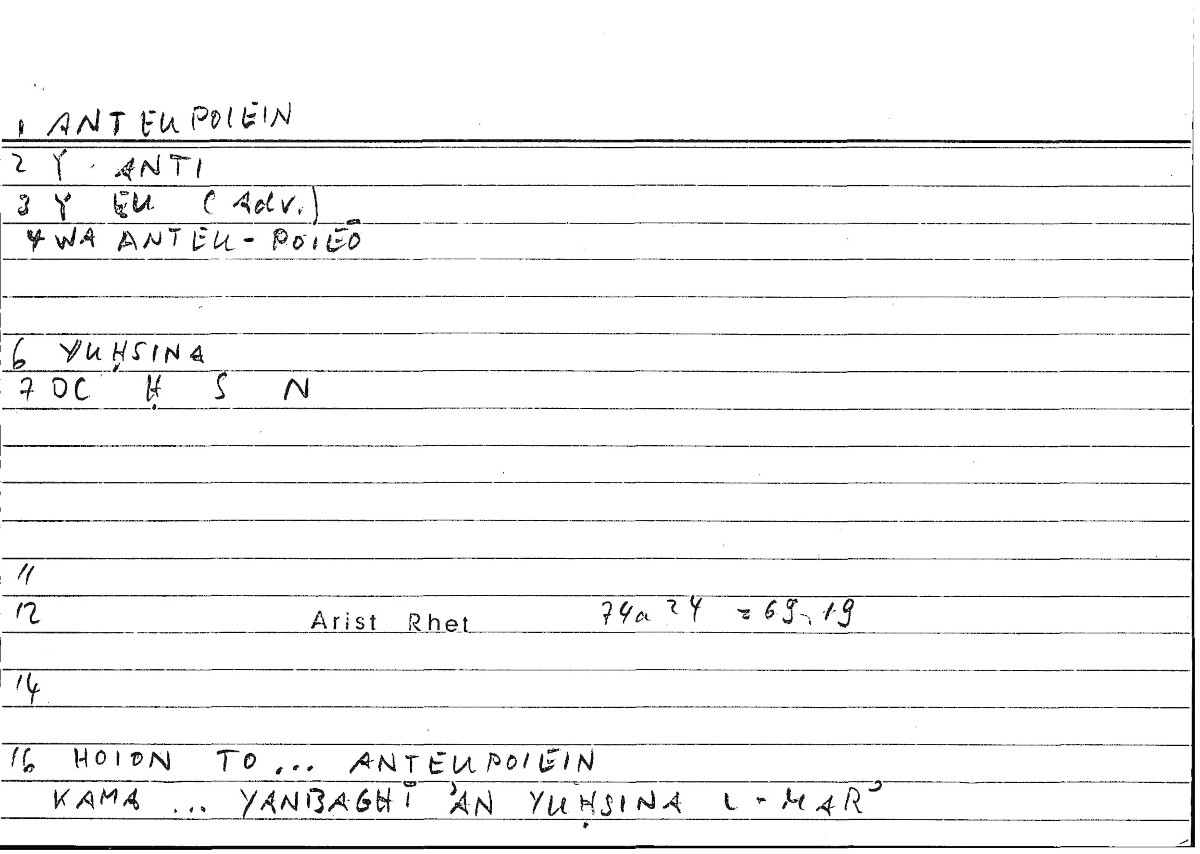 1 ANTEUPOIEIN
2 Y ANTI
3 Y EU (Adv.)
4 WA ANTEU-POIEŌ
6 YUḤSINA
7 OC Ḥ S N
11
12 Arist Rhet 74a 24 = 69,19
14
16 HOION TO ... ANTEUPOIEIN
KAMA ... YANBAGHĪ ʾAN YUḤSINA L-MARʾ